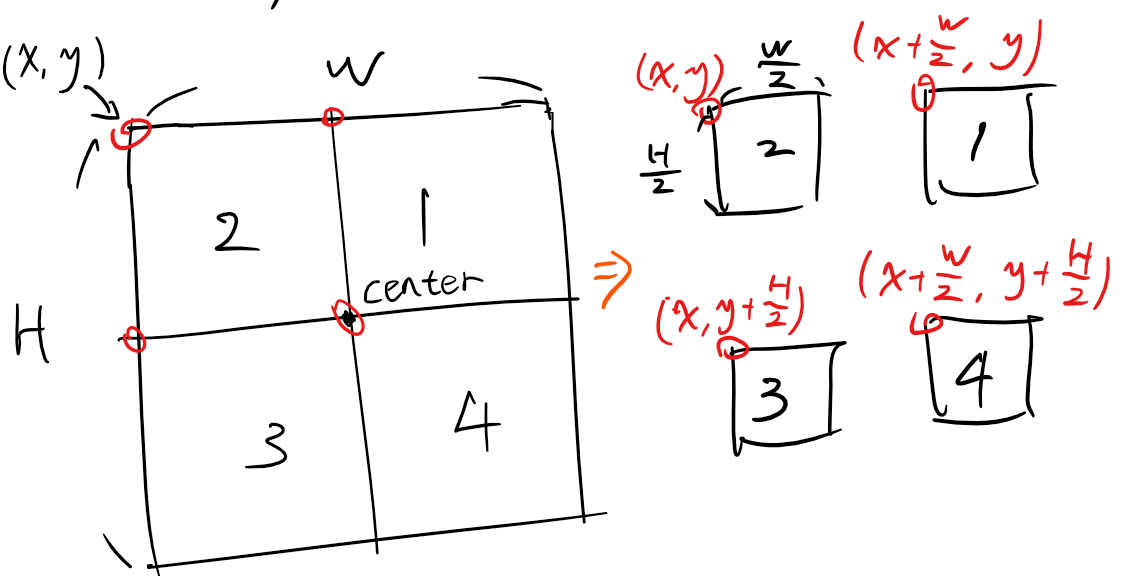 (x, y)
W
2
1
center
H
3
4
⇒
(x, y)
W/2
H/2
2
(x + W/2, y)
1
(x, y + H/2)
3
(x + W/2, y + H/2)
4